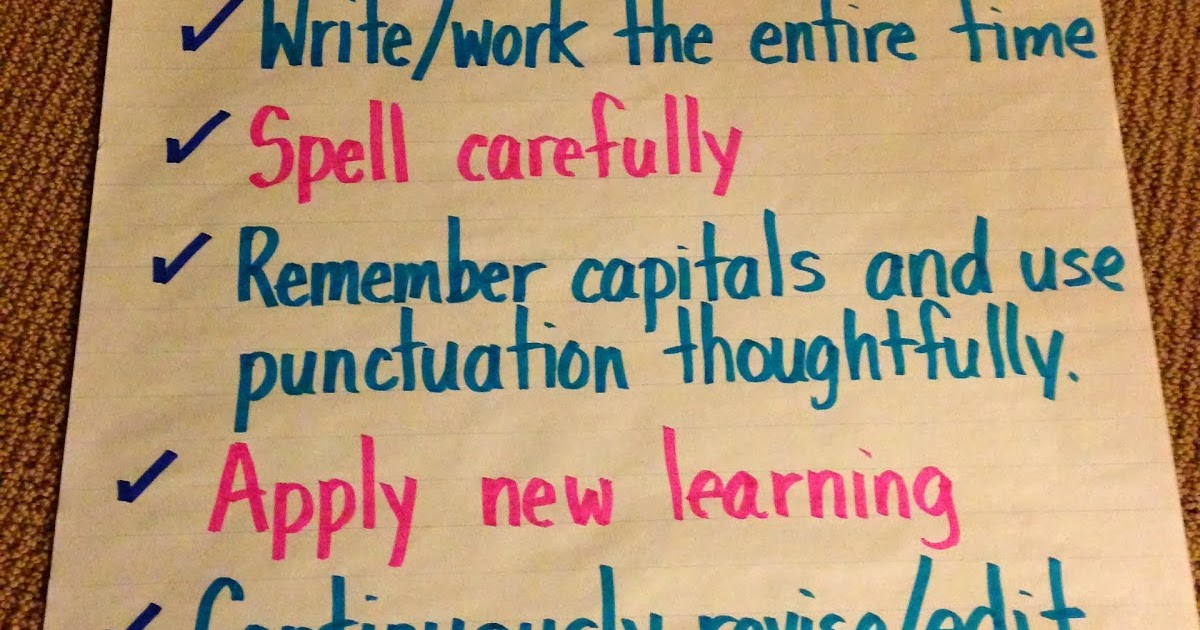 ✓ Write/work the entire time
✓ Spell carefully
✓ Remember capitals and use
punctuation thoughtfully.
✓ Apply new learning
✓ Continuously revise/edit